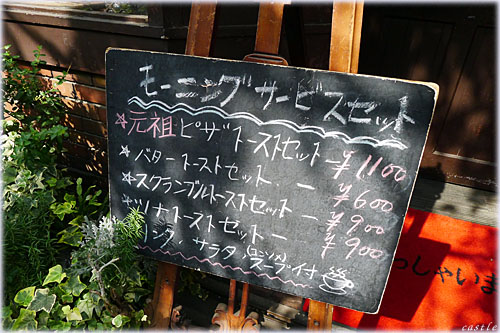 モーニングサービスセット
☆元祖ピザトーストセット ー ¥1100
☆バタートーストセット ー ¥600
☆スクランブルトーストセット ー ¥900
ツナトーストセット ー ¥900
ドリンク、サラダ、スープ付
っしゃいま
castle